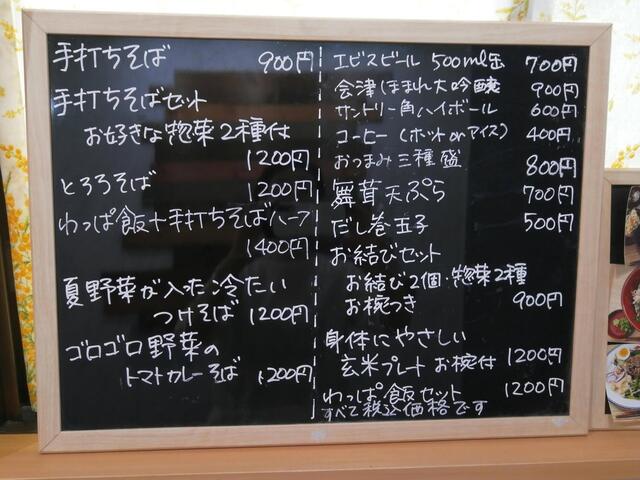 手打ちそば 900円
手打ちそばセット
お好きな惣菜2種付
1200円
とろろそば 1200円
わっぱ飯+手打ちそばハーフ
1400円
夏野菜が入った冷たい
つけそば 1200円
ゴロゴロ野菜の
トマトカレーそば 1200円
エビスビール 500ml缶 700円
会津ほまれ大吟醸 900円
サントリー角ハイボール 600円
コーヒー(ホットorアイス) 400円
おつまみ三種盛 800円
舞茸天ぷら 700円
だし巻玉子 500円
お結びセット
お結び2個・惣菜2種
お椀つき 900円
身体にやさしい
玄米プレート お椀付 1200円
わっぱ飯セット 1200円
すべて税込価格です